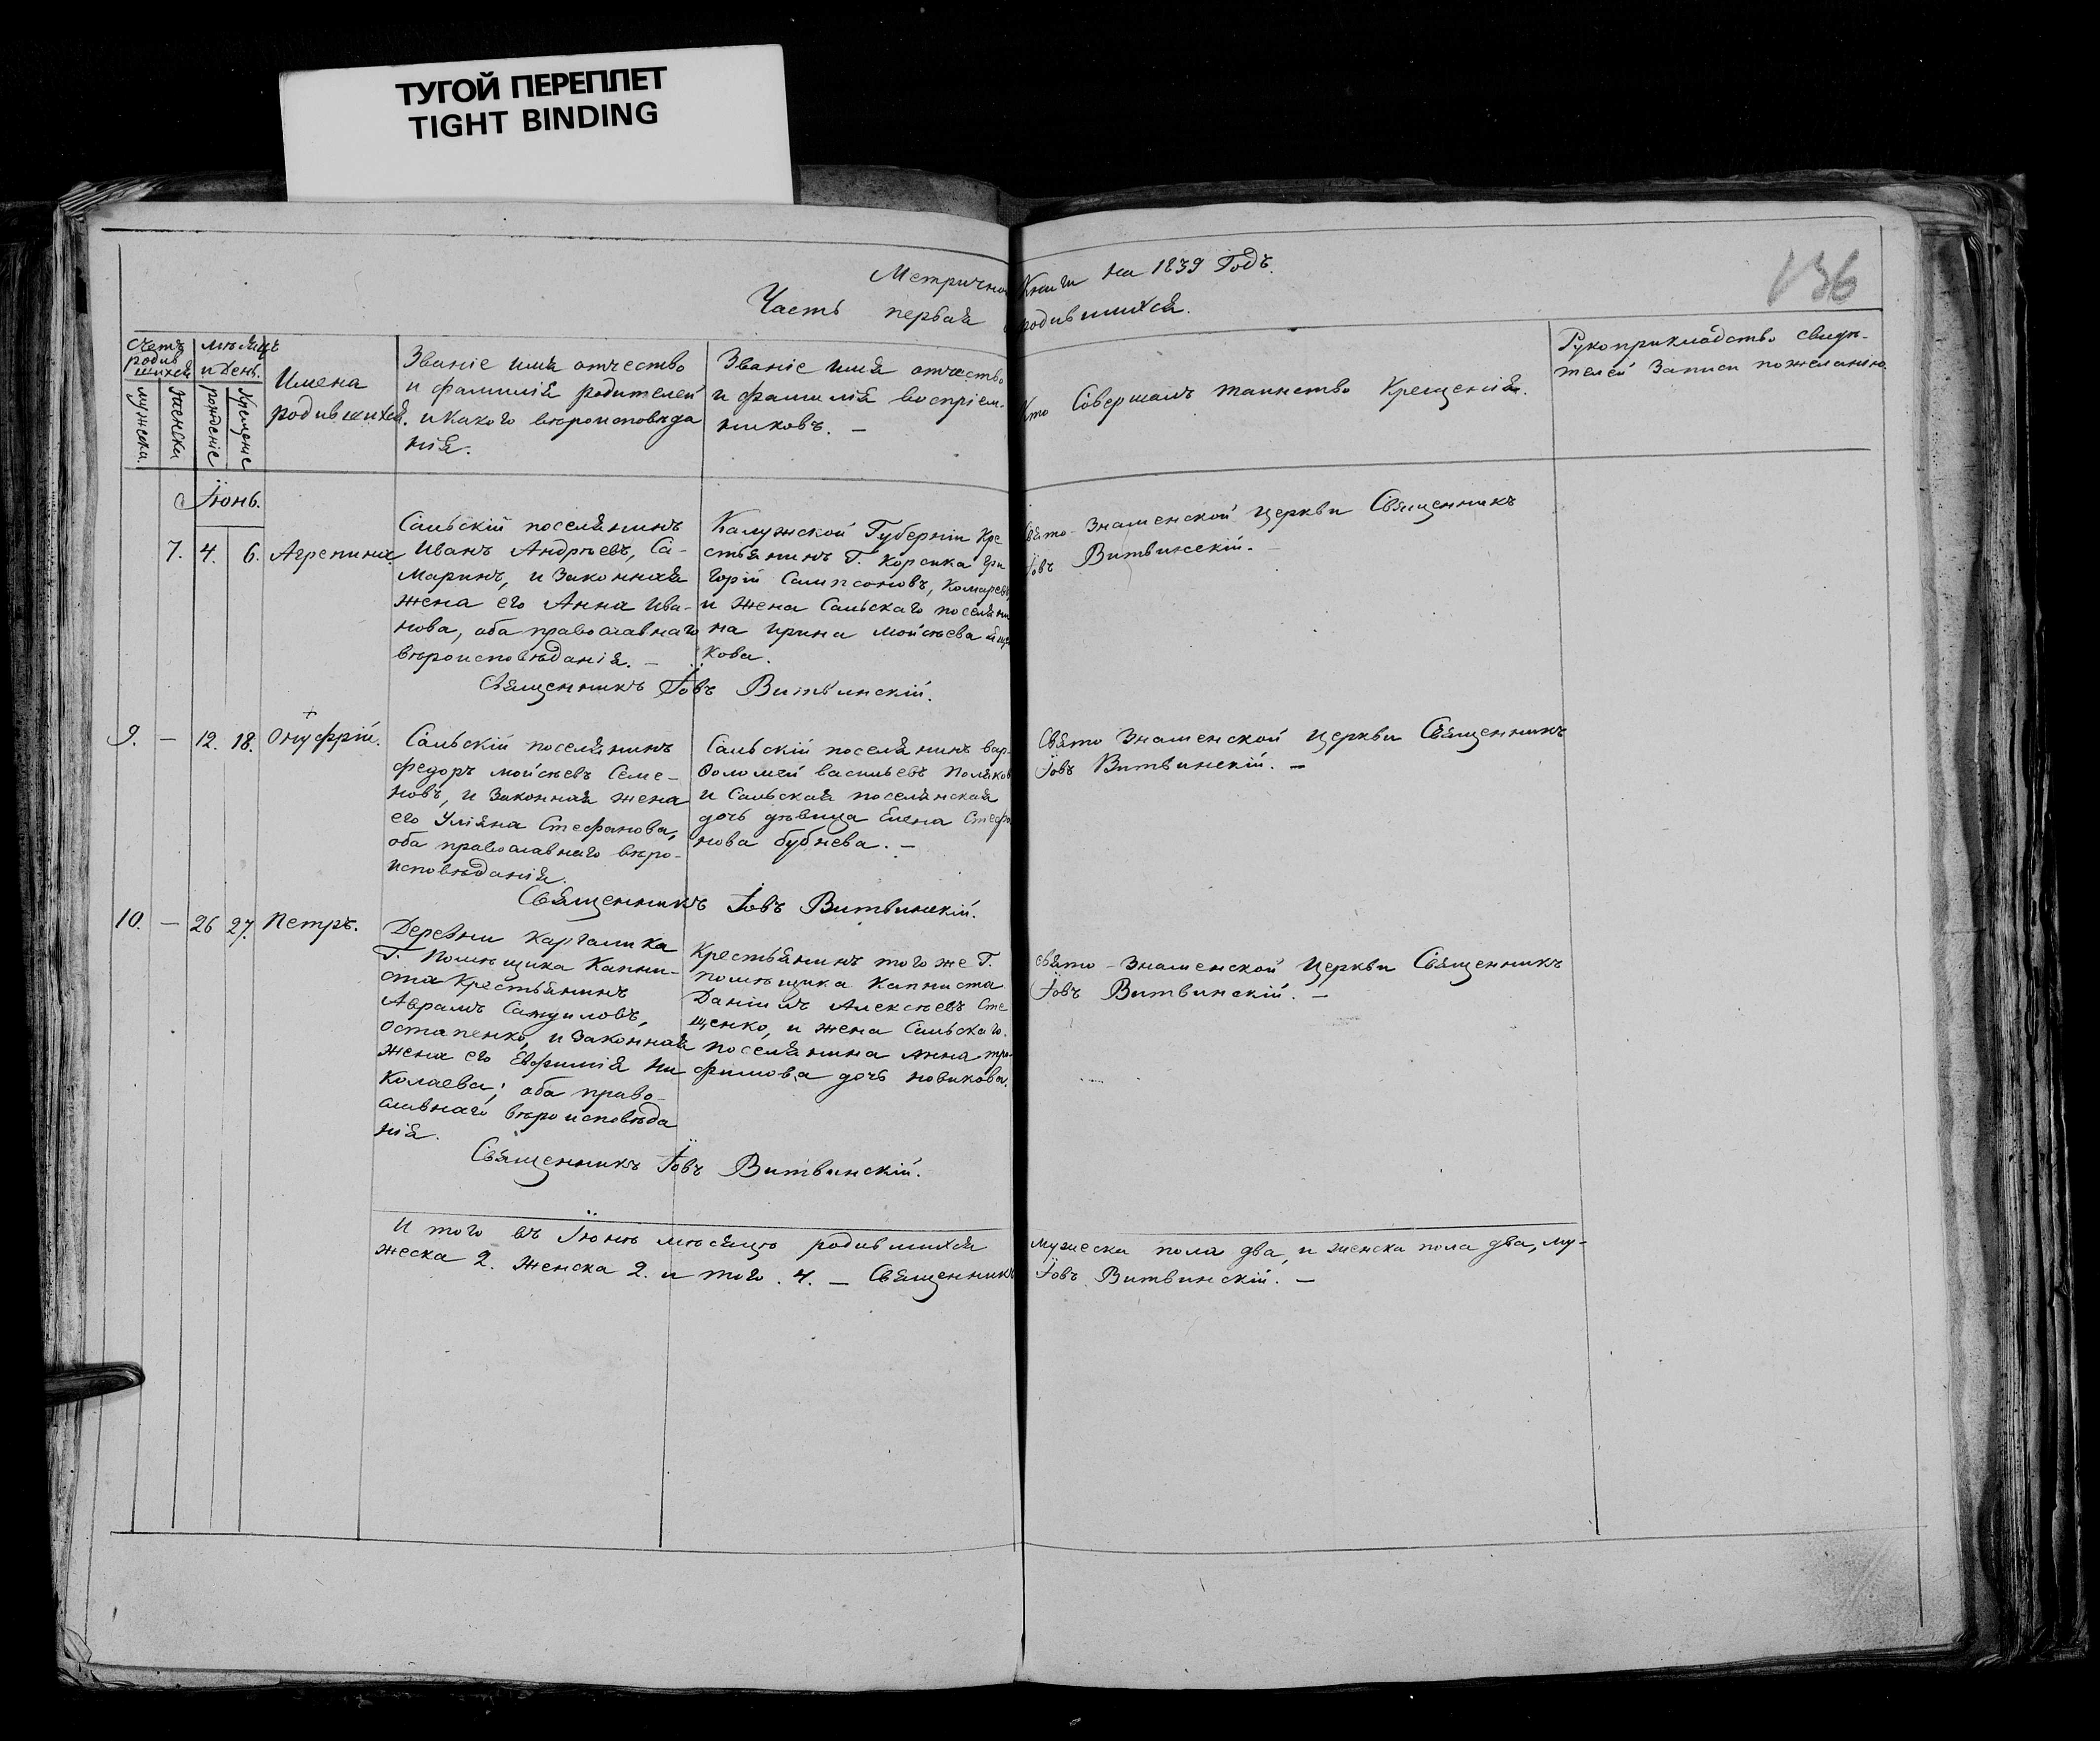 ТУГОЙ ПЕРЕПЛЕТ
TIGHT BINDING
136
Метрично Книги на 1839 Годъ.
Часть первая родившихся.
Счетъ родив шихся
мѣсяцъ и День.
мужеска.
женска
рожденіе
Крещеніе
Имена
родившихся.
Званіе имя отчество
и фамилія родителей
и какого вѣроисповѣда
нія.
Званіе имя отчество
и фамилія воспріем-
никовъ. —
Кто Совершалъ таинство Крещенія.
Рукоприкладство свидѣ-
телей Записи пожеланію.
Іюнь.
7. 4. 6. Агрепина.
Сальскій поселянинъ
Иванъ Андрѣевъ, Са-
маринъ, и Законная
жена его Анна Ива-
нова, оба православнаго
вѣроисповѣданія. —
Калужской Губерніи Кре
стьянинъ Г. Корсика Гри
горій Сампсоновъ, Комаревъ
и жена Сальскаго поселяни
на ирина мойсѣева
кова.
Свято-Знаменской церкви Священникъ
Іовъ Витвинскій. —
Священникъ Іовъ Витвинскій.
9. — 12. 18. Онуфрій.
Сальскій поселянинъ
Федоръ мойсѣевъ Семе-
новъ, и Законная жена
его Уліяна Стефанова,
оба православнаго вѣро-
исповѣданія.
Сальскій поселянинъ вар-
ѳоломей васильевъ Поляков
и Сальская поселянская
дочь дѣвица Елена Стефа
нова бубнева. —
Свято Знаменской церкви Священникъ
Іовъ Витвинскій. —
Священникъ Іовъ Витвинскій.
10. — 26 27. Петръ.
Деревни Каргалика
Г. Помѣщика Капни-
ста Крестьянинъ
Аврамъ Самуиловъ,
Остапенко, и Законная
жена его Евфимія Ни
колаева; оба право-
славнаго вѣроисповѣда
нія.
Крестьянинъ того же Г.
помѣщика Капниста
Даніилъ Алексѣевъ Сте
щенко, и жена Сальскаго
поселянина Анна тро-
фимова дочь новикова.
Свято-Знаменской Церкви Священникъ
Іовъ Витвинскій. —
Священникъ Іовъ Витвинскій.
И того въ Іюнѣ мѣсяцѣ родившихся мужеска пола два, и женска пола два, му-
жеска 2. женска 2. и того. 4. — Священникъ Іовъ Витвинскій. —